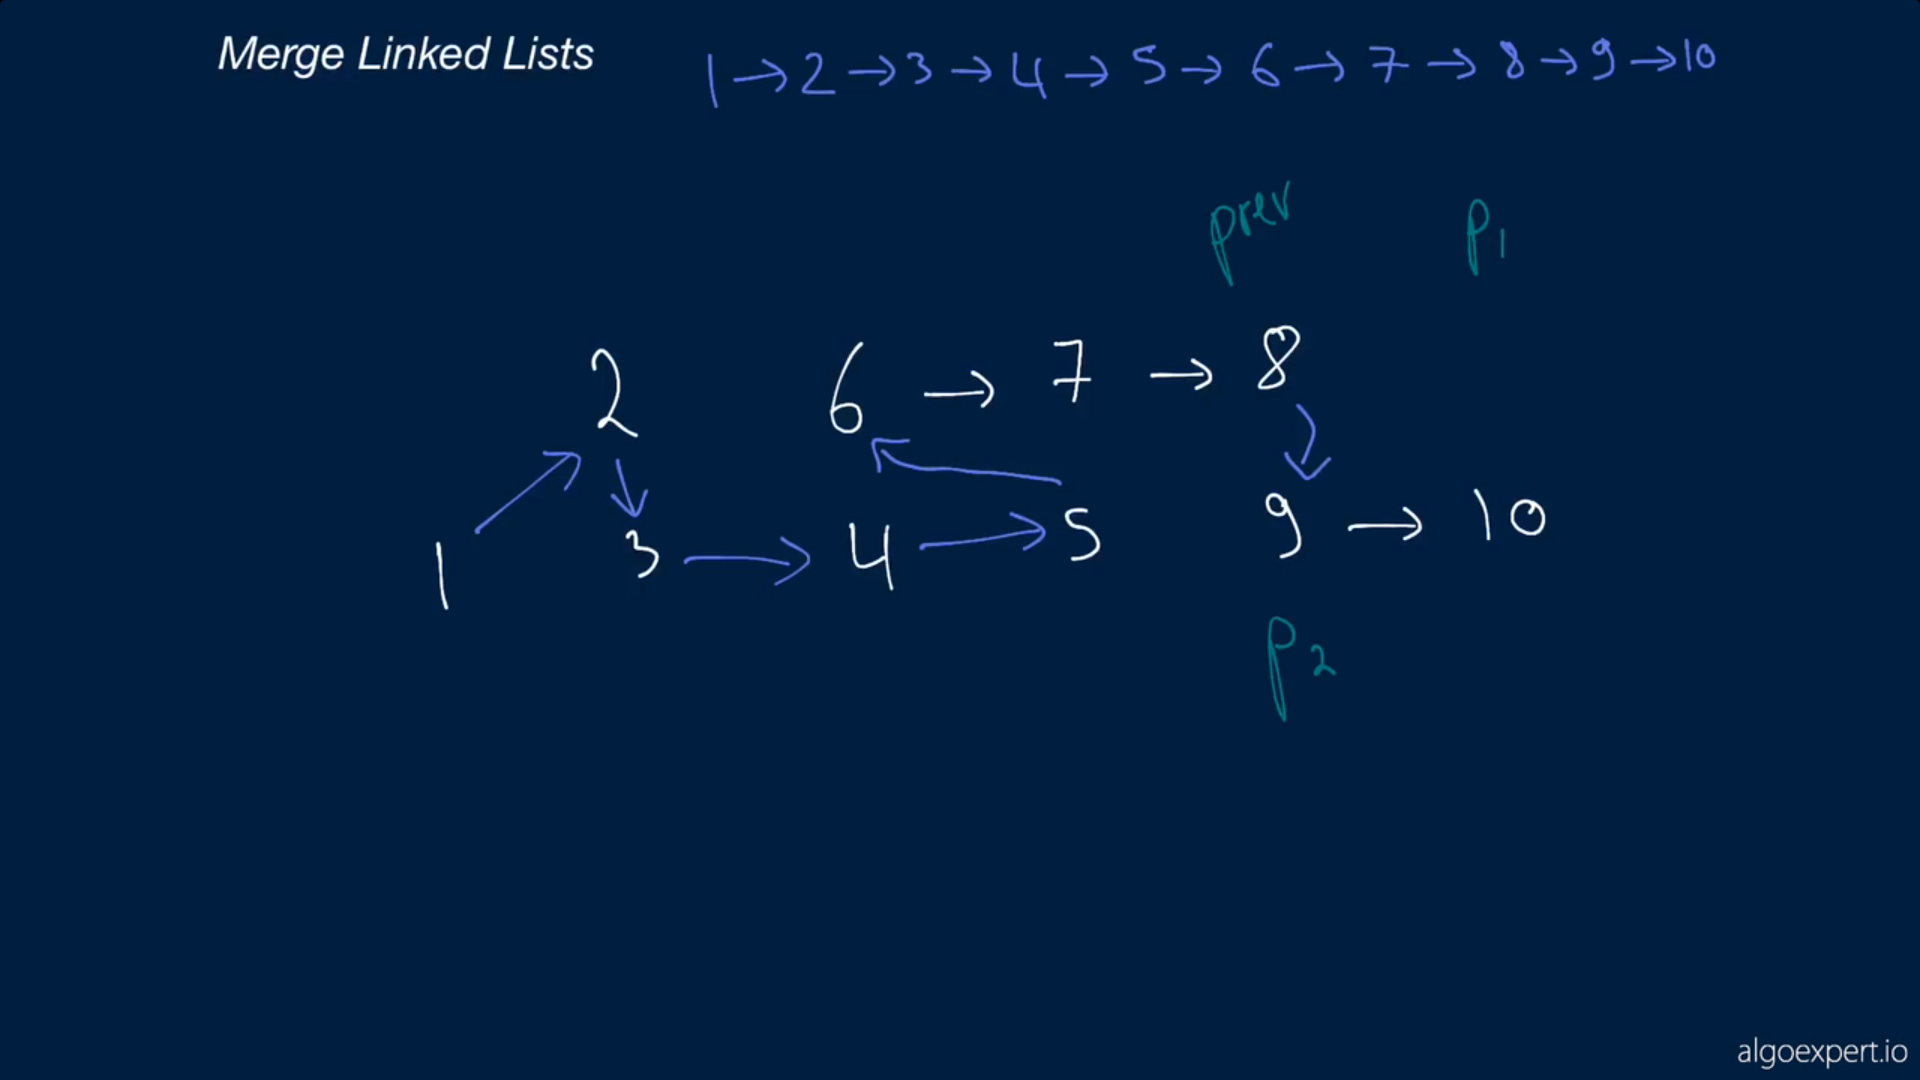 Merge Linked Lists
1 → 2 → 3 → 4 → 5 → 6 → 7 → 8 → 9 → 10
prev p1
2 6 → 7 → 8
1 3 → 4 → 5 9 → 10
p2
algoexpert.io